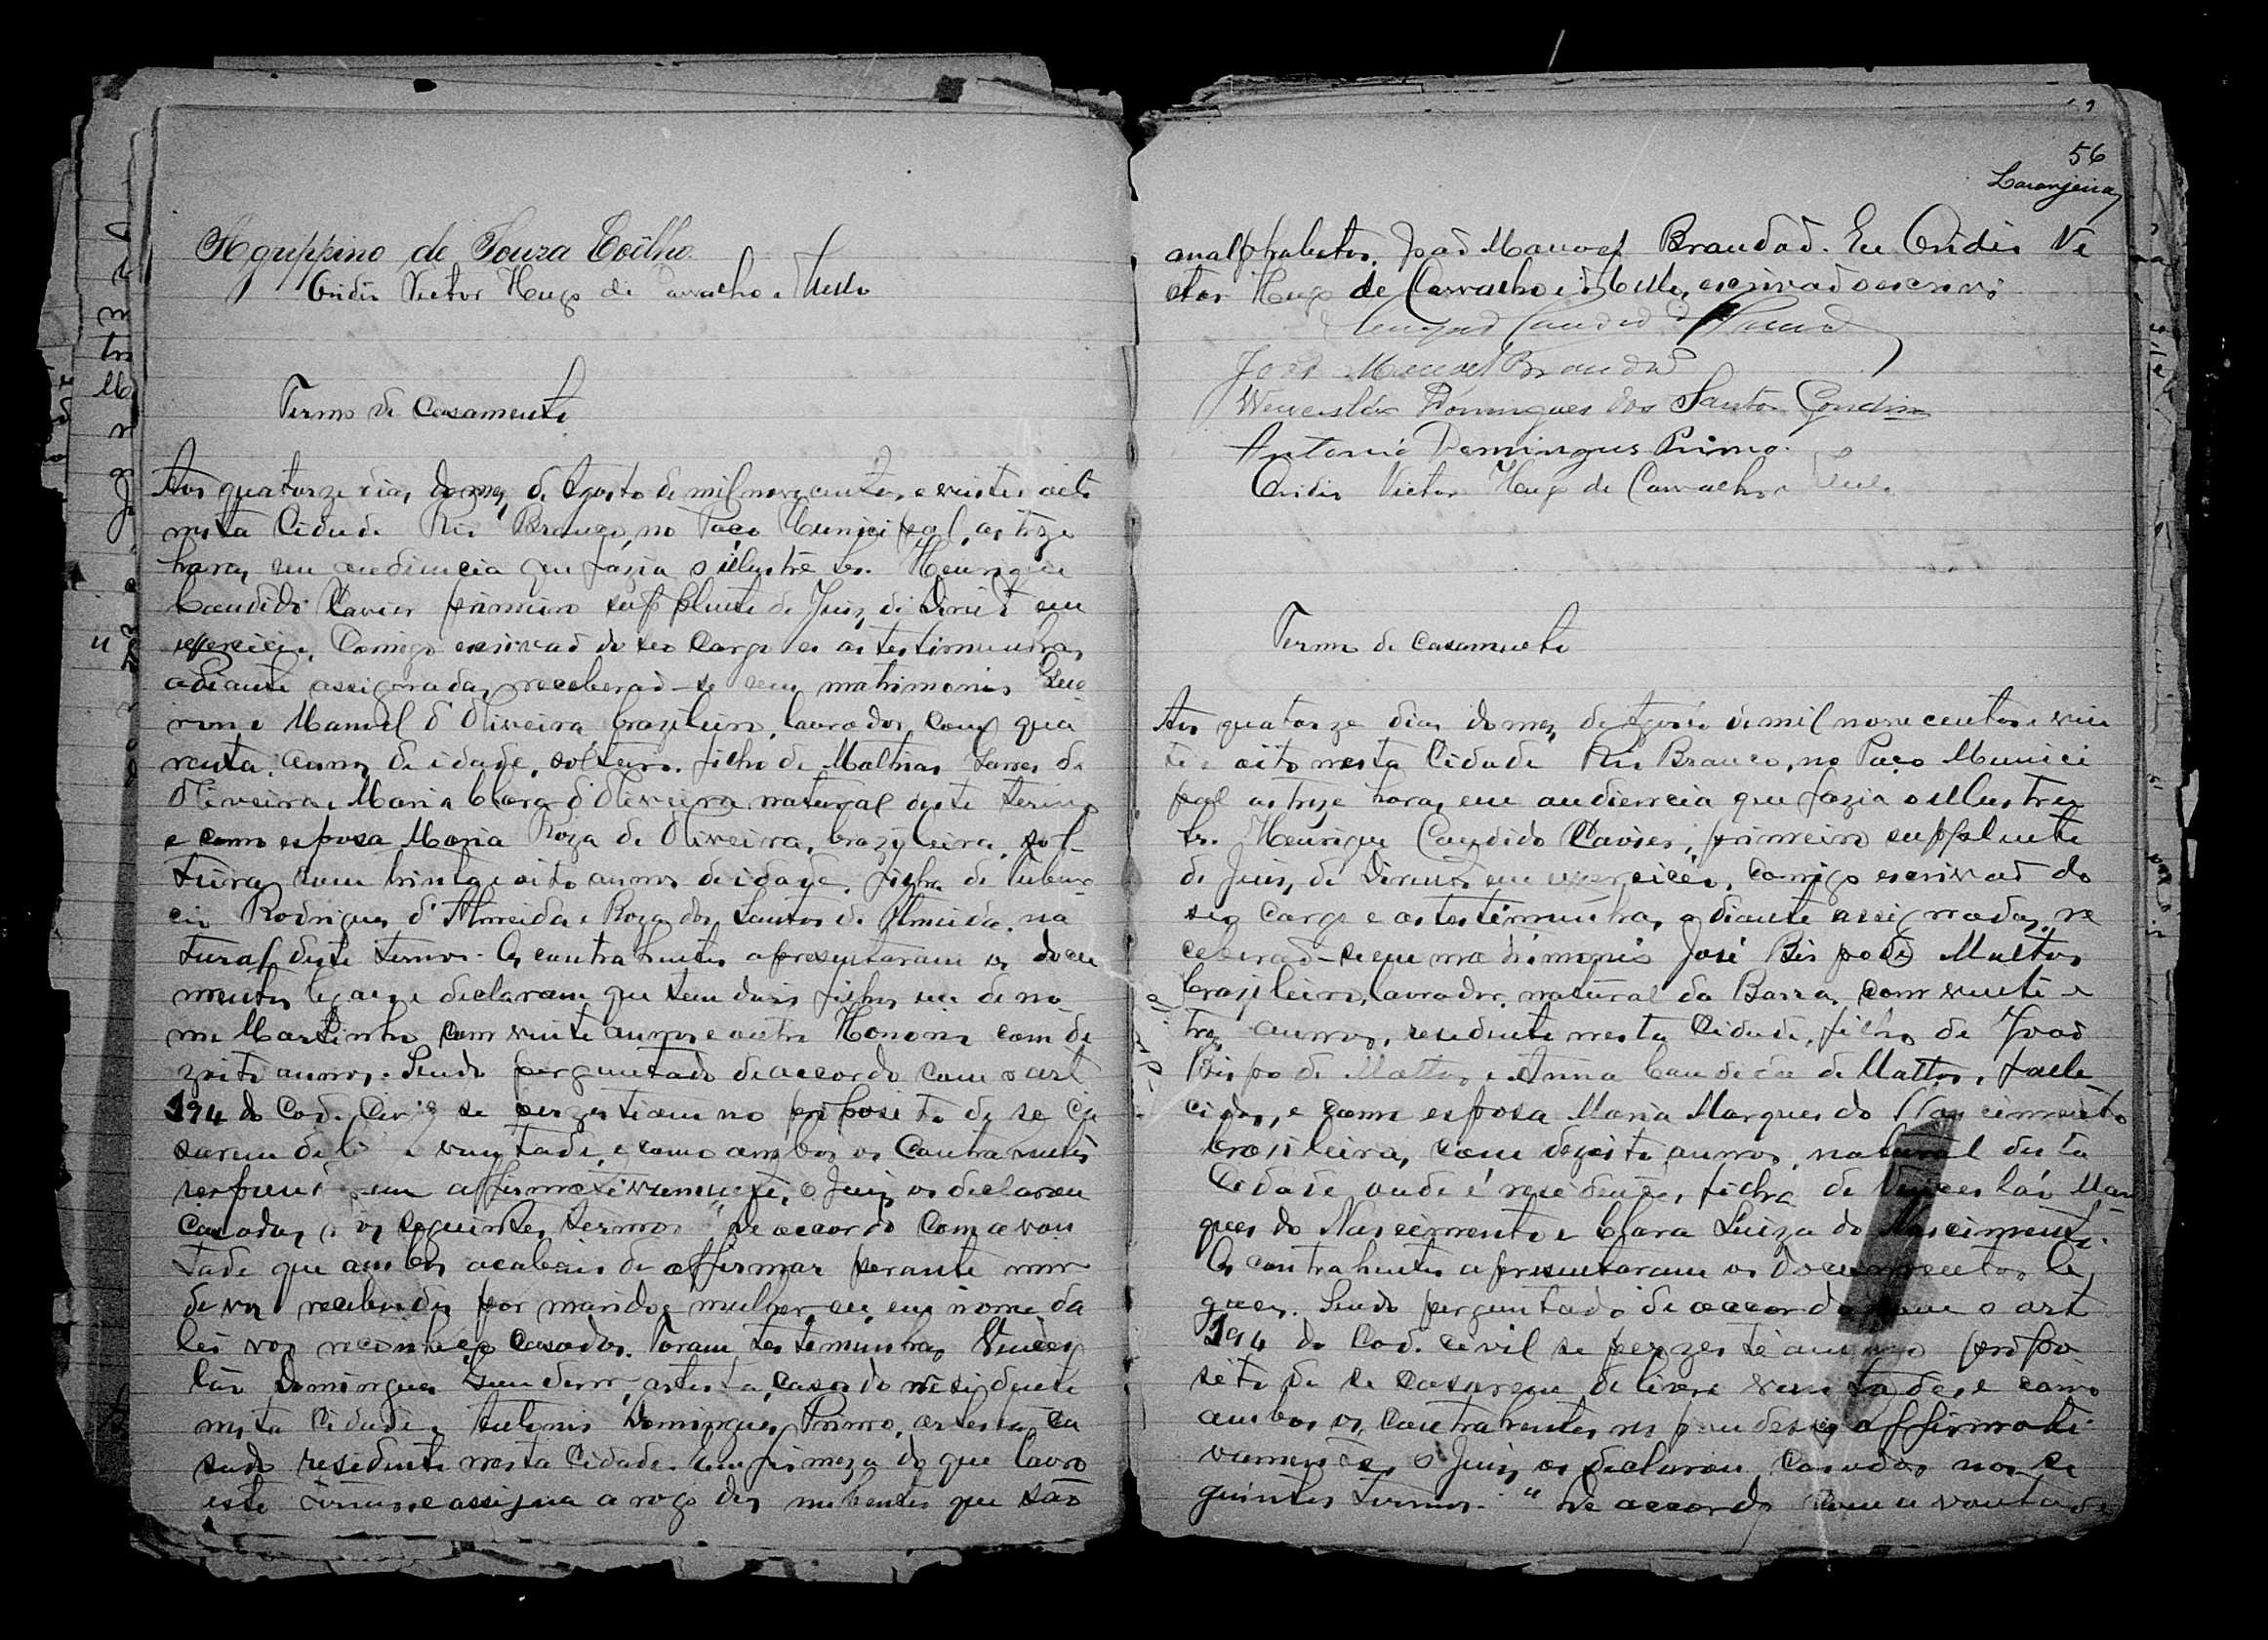 Agrippino de Souza Coêlho.
Ovidio Victor Hugo de Carvalho e Mello
Termo de Casamento
Aos quatorze dias do mez de Agosto de mil nove centos e vinte e oito
nesta Cidade Rio Branco, no Paço Municipal, as treze
horas, em audiencia que fazia o illustre Sr. Henrique
Candido Xavier primeiro supplente de Juiz de Direito em
exercicio, Comigo escrivad do seo cargo e as testimunhas
adiante assignadas, receberad-se em matrimonio
Manuel d'Oliveira, brazileiro, lavrador, com qua
renta annos de idade, solteiro, filho de Mathias de
Oliveira e Maria Clara d'Oliveira natural deste termo
e como esposa Maria Roza de Oliveira, brazileira, sol-
teira, com trinta e oito annos de idade, filha de
Rodrigues d'Almeida e Roza dos Santos de Almeida, na
tural deste termo. Os contrahentes apresentaram os docu
mentos legaes e declaram que tem dois filhos um de no
me Martinho com vinte annos e outro Honorio com de
zoito annos. Sendo perguntado de accordo com o art
194 do Cod. Civil se perzestiam no proposito de se ca
sarem de vontade, e como ambos os Contrahentes
affirmativamente, o Juiz os declarou
casados, os seguintes termos "De accordo com a von
tade que ambos acabais de affirmar perante mim
de vos receberdes por marido e mulher, eu em nome da
lei vos reconheço casados. Foram testemunhas Vences
láu Domingues Gondim, artista, casado residente
nesta Cidade e Antonio Domingues Primo, artista, ca
sado residente nesta Cidade. Em firmeza do que lavro
este termo e assigna a rogo dos nubentes que são
56
Laranjeira
analphabetos, Joad Manoel Brandad. Eu Ovidio Vi
ctor Hugo de Carvalho e Mello, escrivad o escrevi
Joad Manoel Brandad
Wenceslau Domingues dos Santos Gondim
Antonio Domingues Primo.
Ovidio Victor Hugo de Carvalho e
Termo de Casamento
Aos quatorze dias do mez de Agosto de mil nove centos e vin
te e oito nesta Cidade Rio Branco, no Paço Munici
pal as treze horas, em audiencia que fazia o illustre
Sr. Henrique Candido Xavier, primeiro supplente
de Juiz, de Direito em exercicio, comigo escrivad do
seo cargo e as testimunhas adiante assignadas, re
ceberad-se em matrimonio José Bispo de Mattos
brazileiro, lavrador, natural da Barra, com vinte e
trez annos, residente nesta Cidade, filho de Joad
Bispo de Mattos e Anna Candida de Mattos, falle
cidos, e como esposa Maria Marques do Nascimento
brasileira, com dezoito annos, natural desta
Cidade onde é residente, filha de Venceslau Mar
ques do Nascimento e Clara Luiza do Nascimento.
Os contrahentes apresentaram os documentos le
gaes. Sendo perguntado de accordo com o art
194 do Cod. civil se perzestiam no propo
sito de se casarem de livre vontade, e como
ambos os contrahentes respondessem affirmati
vamente, o Juiz os declarou casados nos se
guintes termos. "De accordo com a vontade